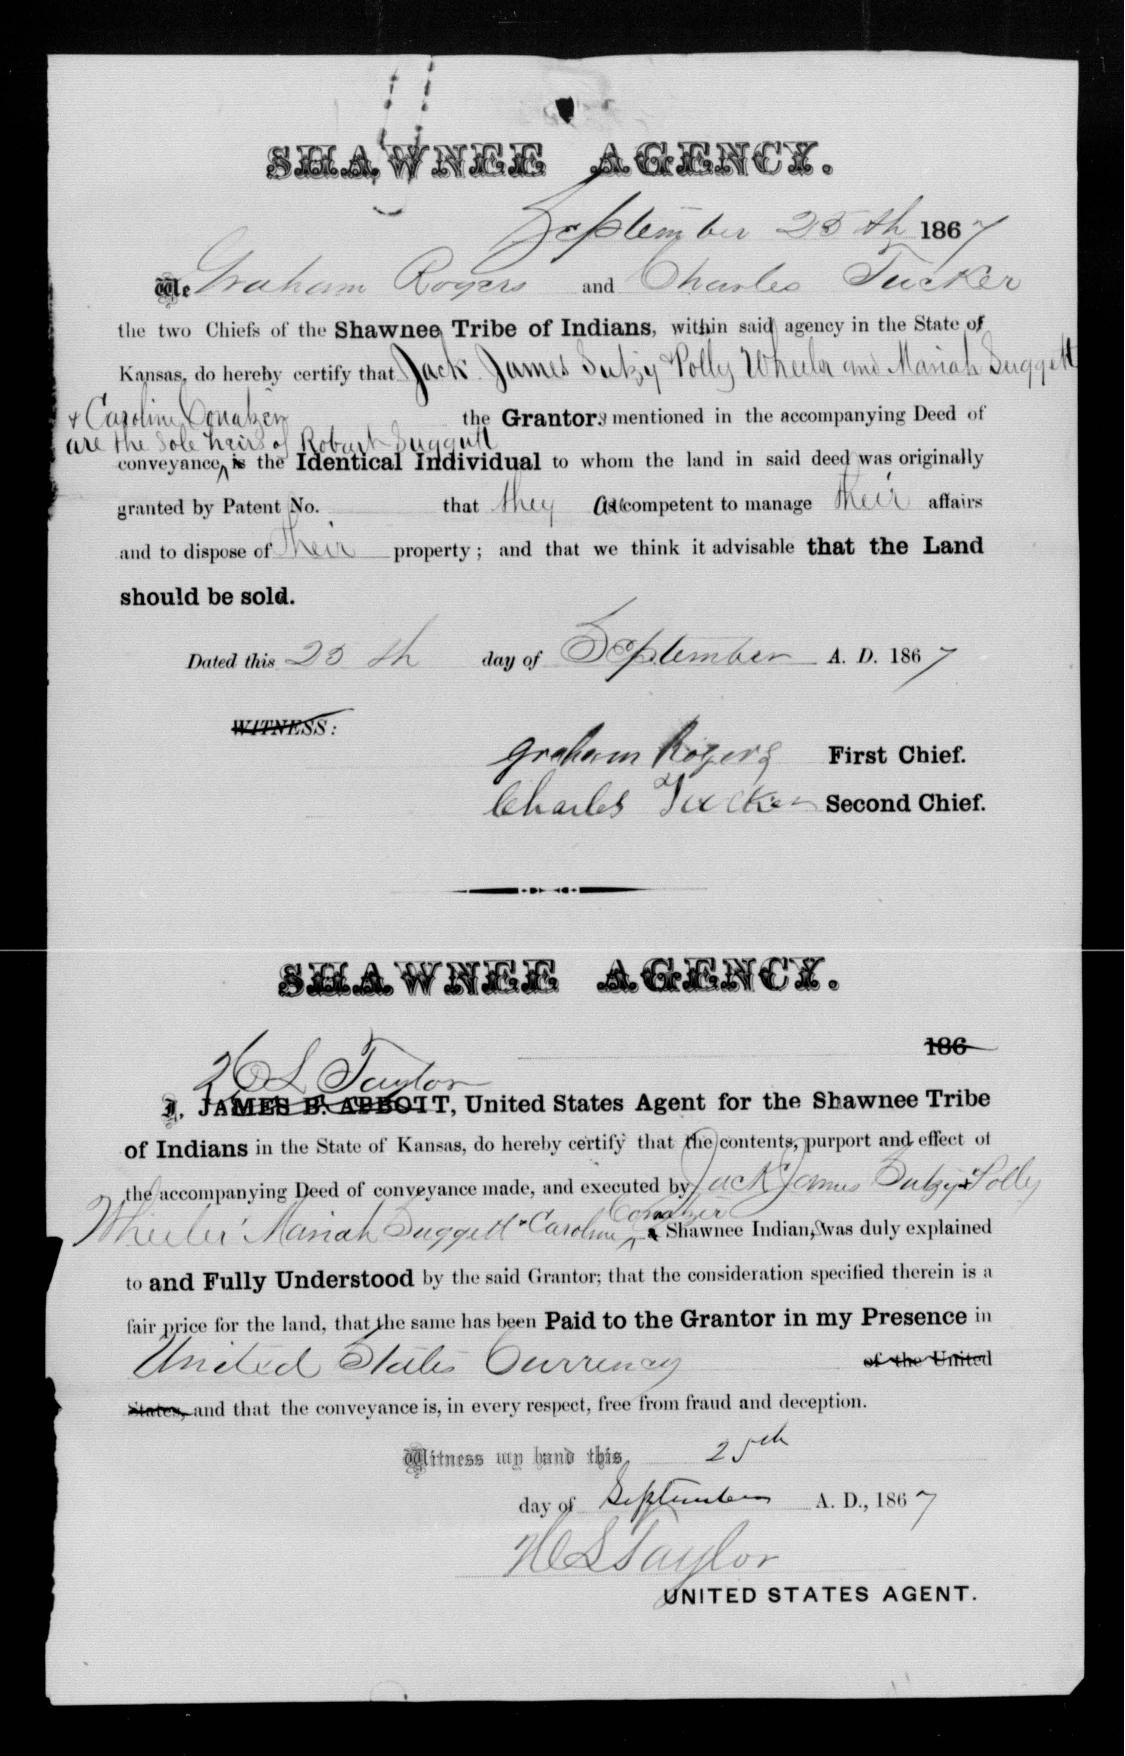 SHAWNEE AGENCY.
September 25th 1867
We Graham Rogers and Charles Tucker
the two Chiefs of the Shawnee Tribe of Indians, within said agency in the State of
Kansas, do hereby certify that Jack James Sutzy & Polly Wheeler and Mariah Suggett
& Caroline Conatzer the Grantors mentioned in the accompanying Deed of
are the sole heirs of Robert Suggett
conveyance, is the Identical Individual to whom the land in said deed was originally
granted by Patent No. that they are competent to manage their affairs
and to dispose of their property; and that we think it advisable that the Land
should be sold.
Dated this 25th day of September A. D. 1867
WITNESS:
Graham Rogers First Chief.
Charles Tucker Second Chief.
SHAWNEE AGENCY.
186
H L Taylor
I, JAMES B. ABBOTT, United States Agent for the Shawnee Tribe
of Indians in the State of Kansas, do hereby certify that the contents, purport and effect of
the accompanying Deed of conveyance made, and executed by Jack James Sutzy & Polly
Conatzer
Wheeler Mariah Suggett & Caroline a Shawnee Indians, was duly explained
to and Fully Understood by the said Grantor; that the consideration specified therein is a
fair price for the land, that the same has been Paid to the Grantor in my Presence in
United States Currency of the United
States, and that the conveyance is, in every respect, free from fraud and deception.
Witness my hand this 25th
day of September A. D., 1867
H L Taylor
UNITED STATES AGENT.